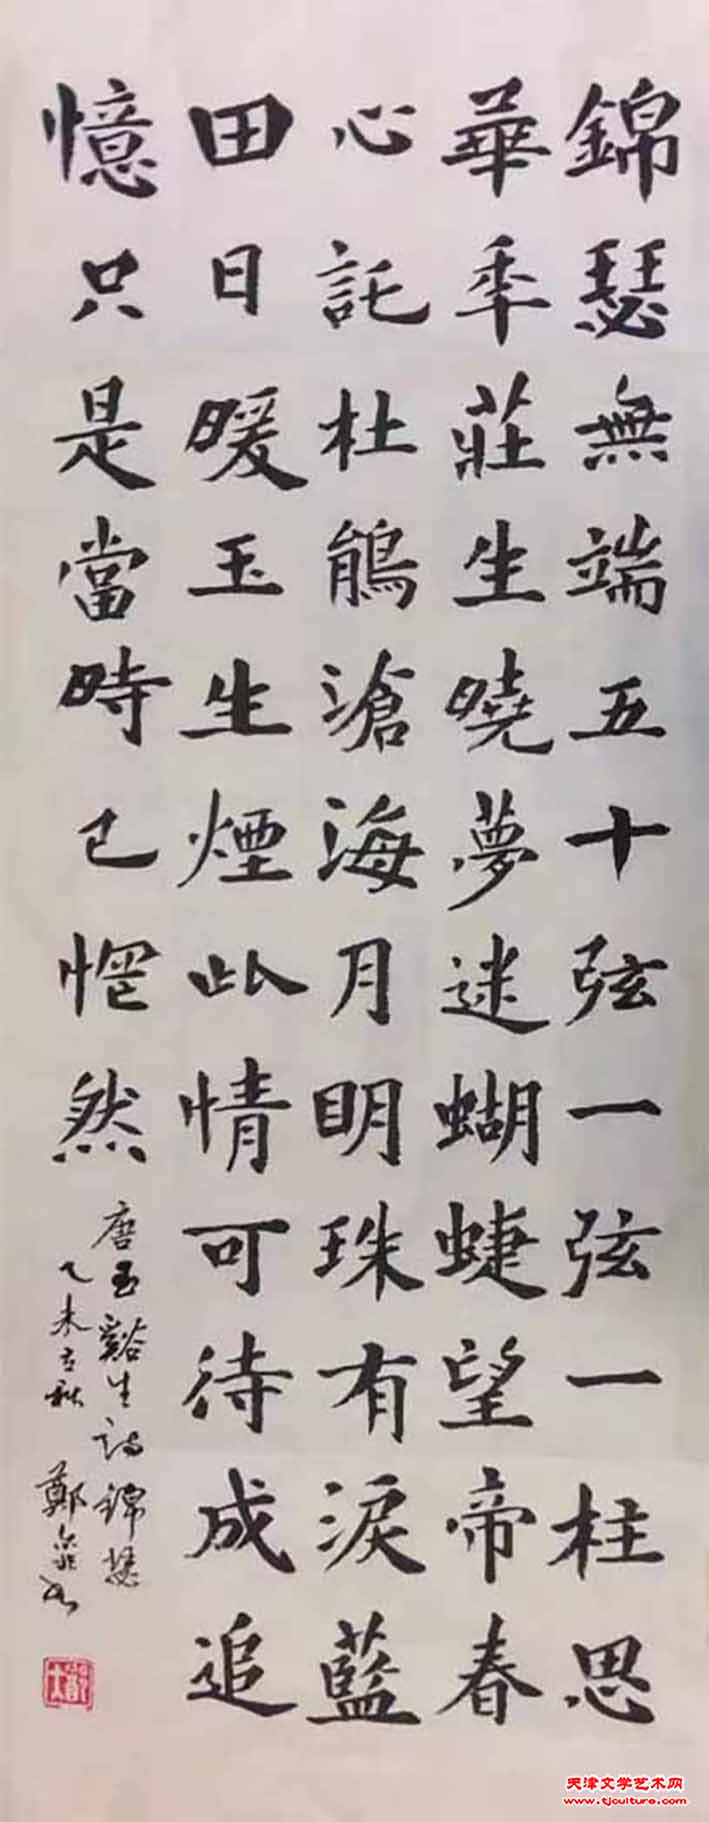 錦瑟無端五十弦一弦一柱思
華年莊生曉夢迷蝴蝶望帝春
心託杜鵑滄海月明珠有淚藍
田日暖玉生煙此情可待成追
憶只是當時已惘然
唐玉谿生詩錦瑟
乙未立秋 鄭
天津文学艺术网
www.tjculture.com